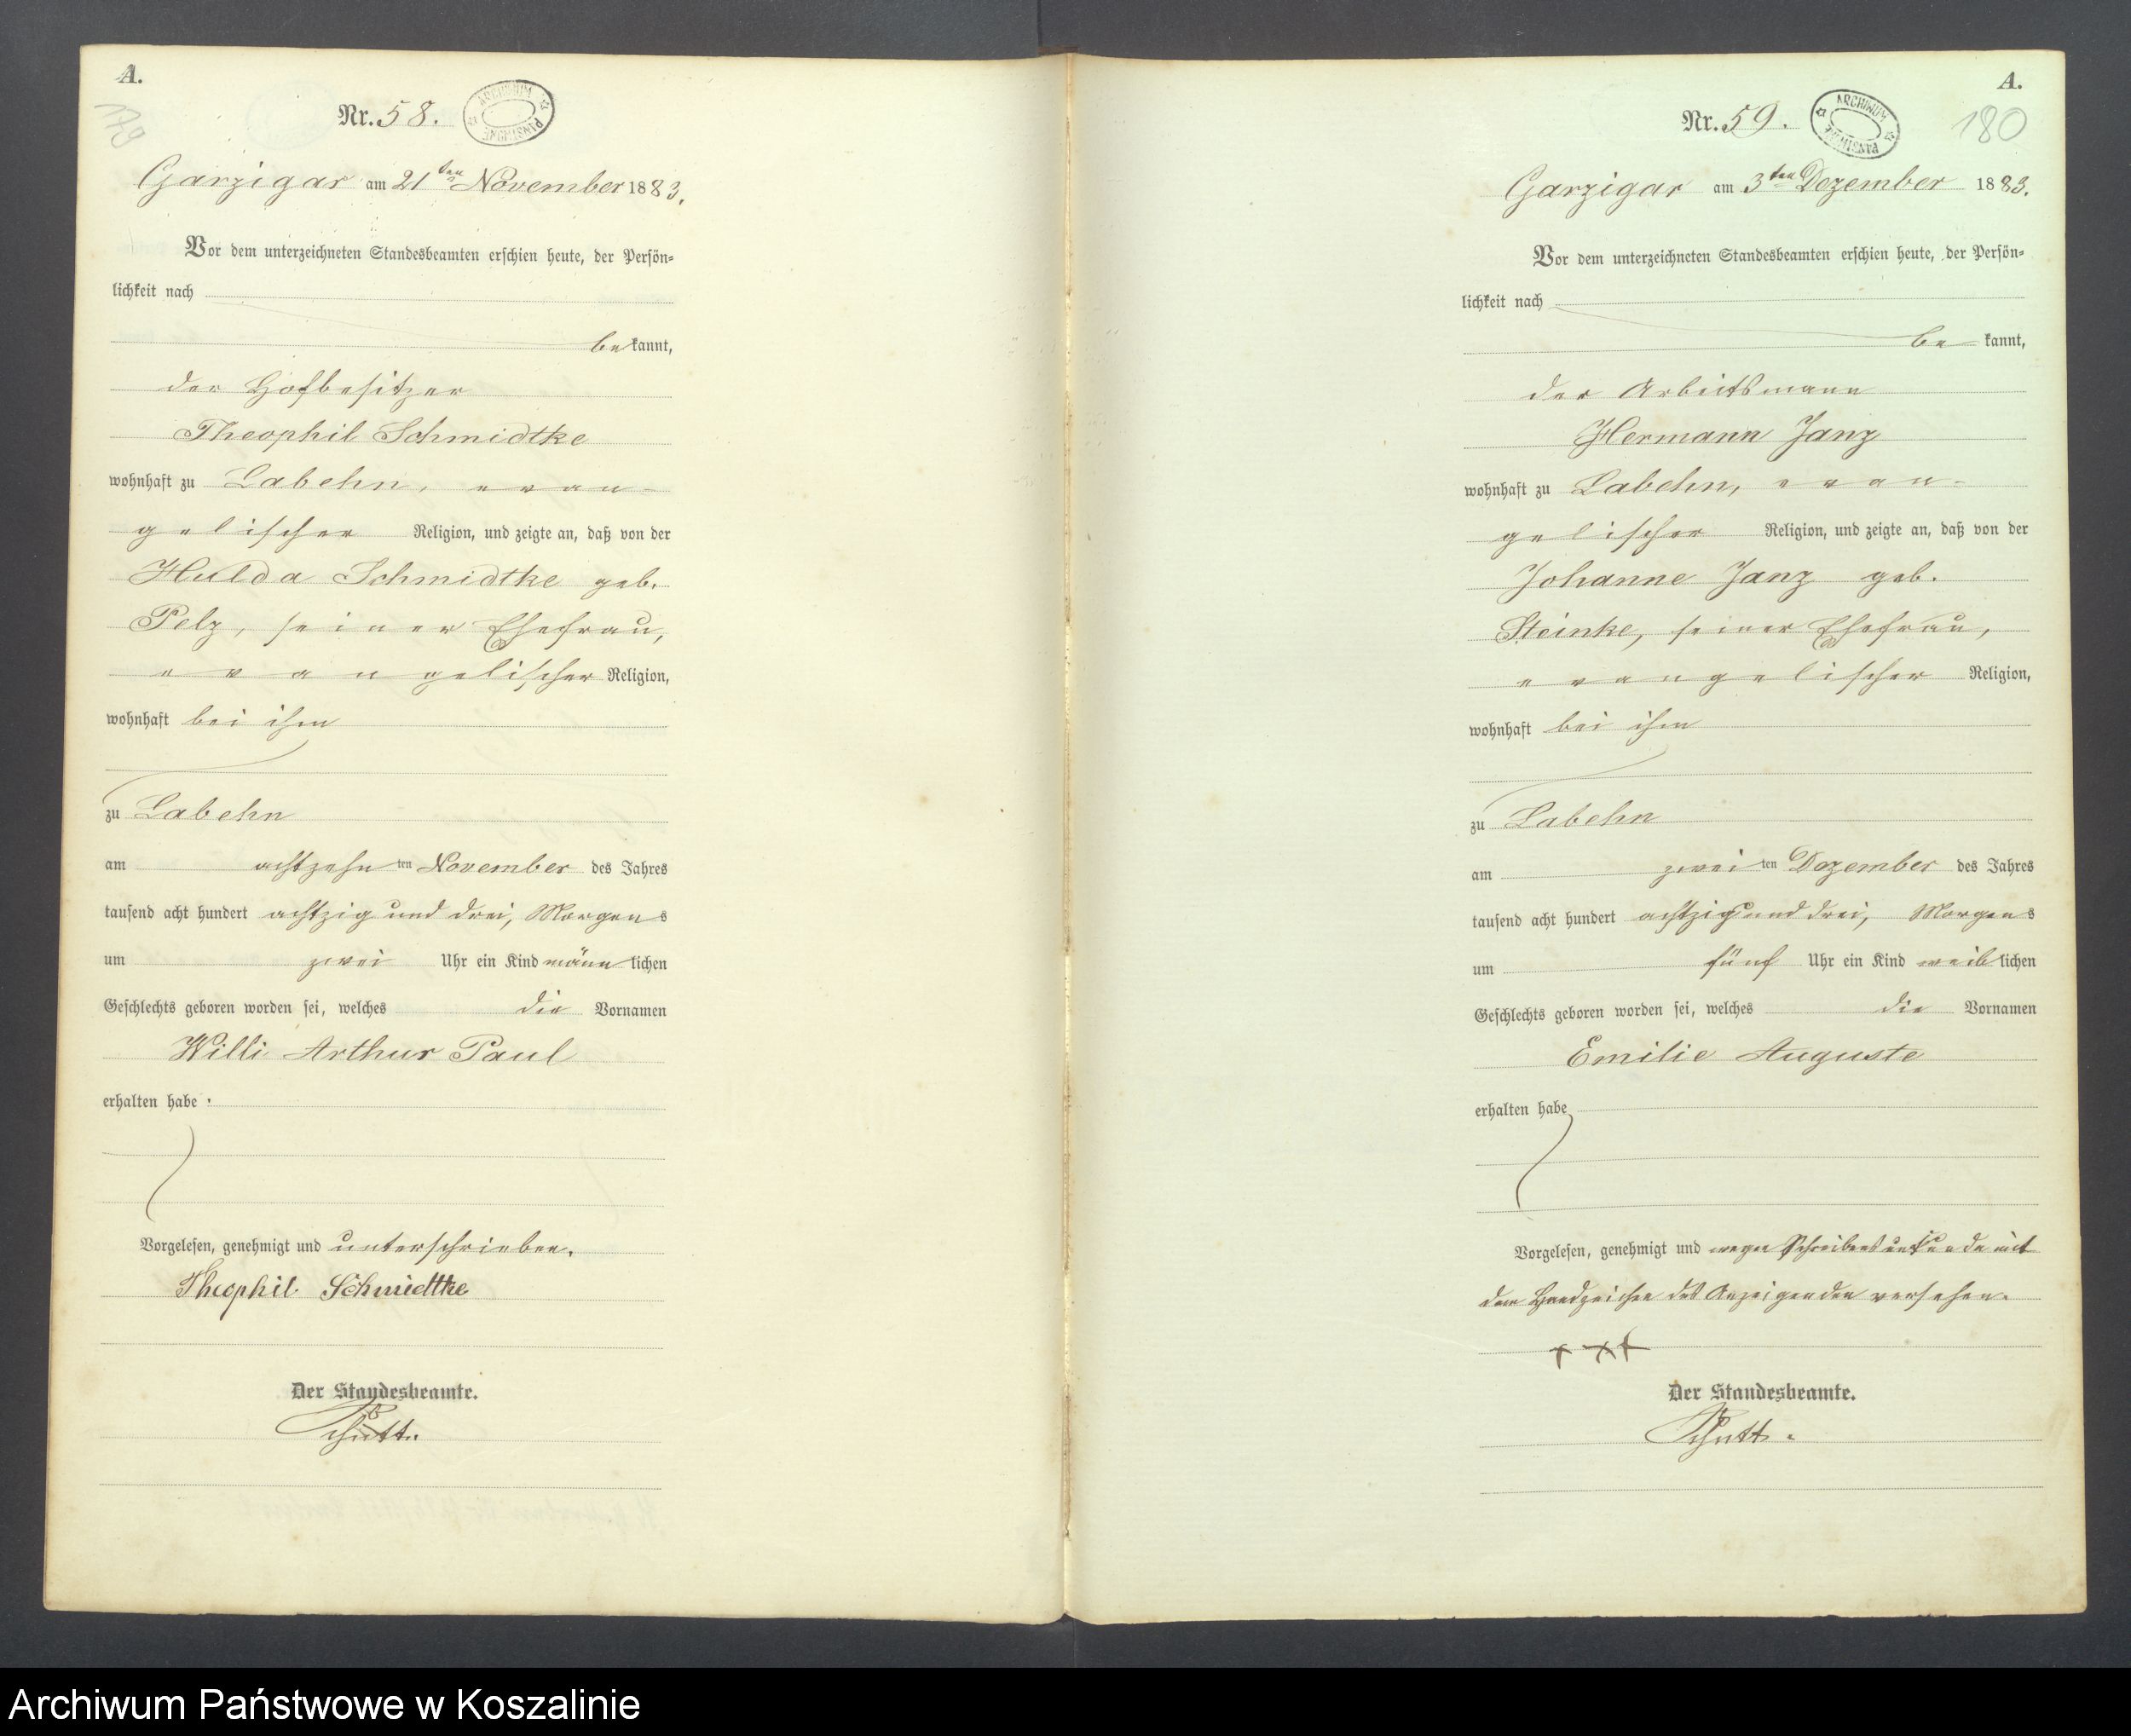 A.
179
Nr. 58.
ARCHIWUM PAŃSTWOWE
Garzigar am 21ten November 1883.
Vor dem unterzeichneten Standesbeamten erschien heute, der Persön-
lichkeit nach
bekannt,
der Hofbesitzer
Theophil Schmidtke
wohnhaft zu Labehn, evan-
gelischer Religion, und zeigte an, daß von der
Hulda Schmidtke geb.
Pelz, seiner Ehefrau,
evangelischer Religion,
wohnhaft bei ihm
zu Labehn
am achtzehnten November des Jahres
tausend acht hundert achtzig und drei, Morgens
um zwei Uhr ein Kind männlichen
Geschlechts geboren worden sei, welches die Vornamen
Willi Arthur Paul
erhalten habe.
Vorgelesen, genehmigt und unterschrieben.
Theophil Schmidtke
Der Standesbeamte.
Schütt.
A.
180
Nr. 59.
ARCHIWUM PAŃSTWOWE
Garzigar am 3ten Dezember 1883.
Vor dem unterzeichneten Standesbeamten erschien heute, der Persön-
lichkeit nach
bekannt,
der Arbeitsmann
Hermann Janz
wohnhaft zu Labehn, evan-
gelischer Religion, und zeigte an, daß von der
Johanne Janz geb.
Steinke, seiner Ehefrau,
evangelischer Religion,
wohnhaft bei ihm
zu Labehn
am zweiten Dezember des Jahres
tausend acht hundert achtzig und drei, Morgens
um fünf Uhr ein Kind weiblichen
Geschlechts geboren worden sei, welches die Vornamen
Emilie Auguste
erhalten habe
Vorgelesen, genehmigt und wegen Schreibensunkunde mit
dem Handzeichen des Anzeigenden versehen.
+ + +
Der Standesbeamte.
Schütt.
Archiwum Państwowe w Koszalinie